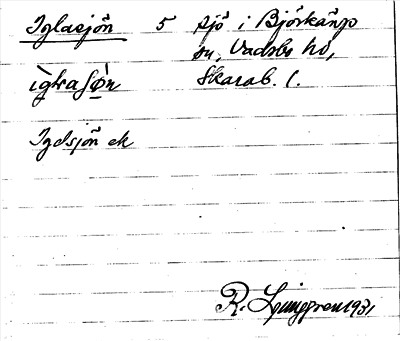 Iglasjön 5 sjö i Björkängs
sn, Vadsbo hd,
Skarab. l.
Igdsjön ek
R. Ljunggren 1931